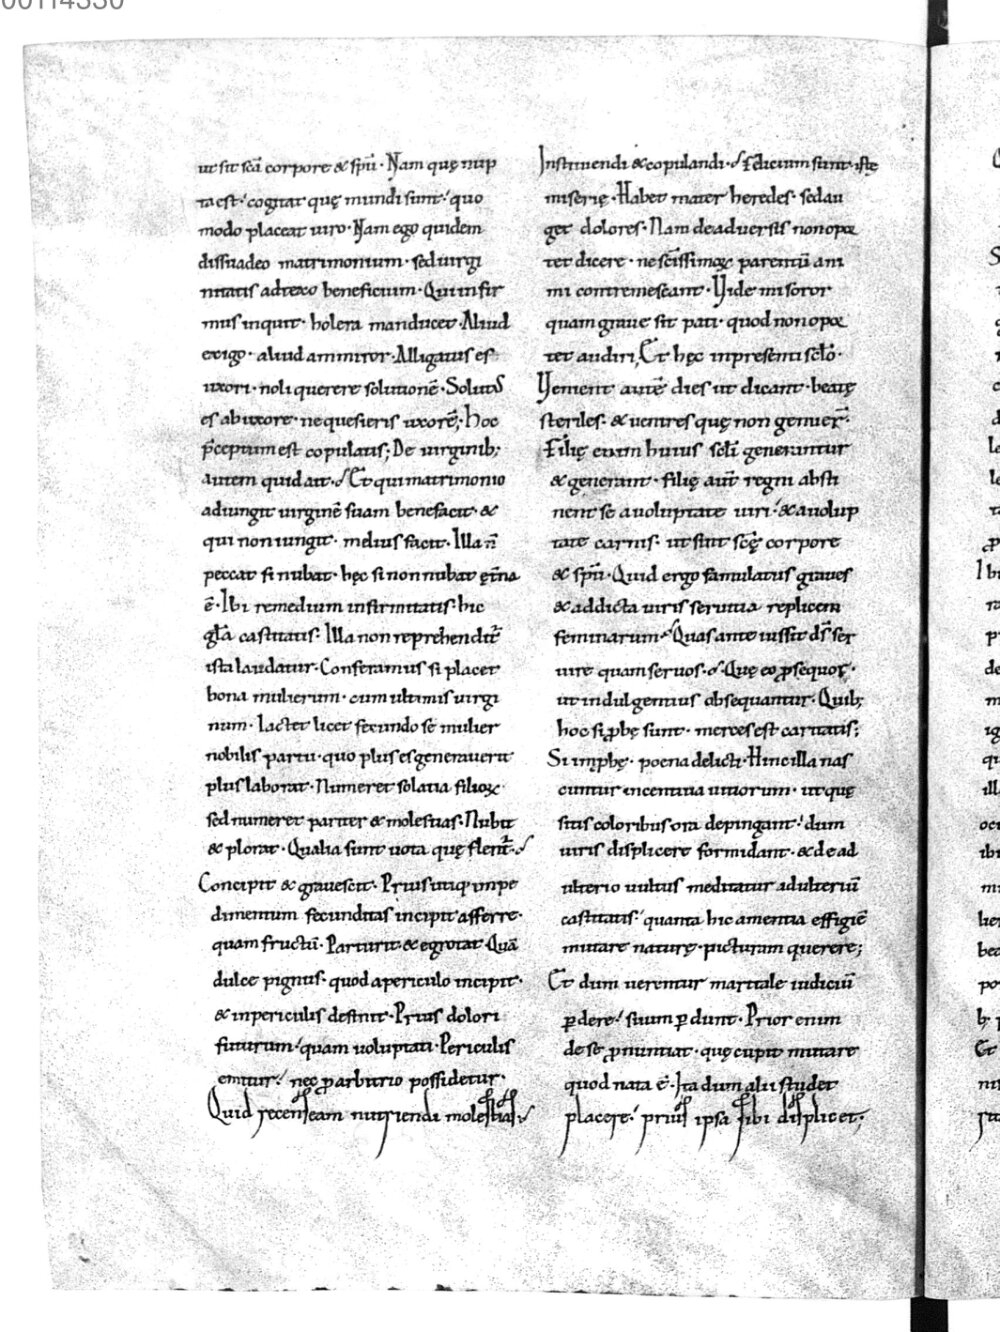 00114330
ut sit scā corpore & spū · Nam quę nup
ta est · cogitat quę mundi sunt · quo
modo placeat uiro · Nam ego quidem
dissuadeo matrimonium · sed uirgi
nitatis adtexo beneficium · Qui infir
mus inquit · holera manducet · Aliud
exigo · aliud ammiror · Alligatus es
uxori · noli querere solutionē · Solutus
es ab uxore · ne quesieris uxorē; Hoc
p̄ceptum est copulatis; De uirginib;
autem quid ait · Et qui matrimonio
adiungit uirginē suam benefacit · &
qui non iungit · melius facit · Illa n̄
peccat si nubat · hęc si non nubat ęt̄na
ē · Ibi remedium infirmitatis · hic
gl̄a castitatis · Illa non reprehendit̄
ista laudatur · Conferamus si placet
bona mulierum · cum ultimis uirgi
num · Iactet licet fecundo se mulier
nobilis partu · quo plus es generauerit
plus laborat · Numeret solatia filioꝝ
sed numeret pariter & molestias · Nubit
& plorat · Qualia sunt uota quę flent̄ ·
Concipit & grauescit · Prius utiq; inpe
dimentum fecunditas incipit afferre ·
quam fructū · Parturit & egrotat · Quā
dulce pignus · quod a periculo incipit ·
& in periculis desinit · Prius dolori
futurum · quam uoluptati · Periculis
emitur · nec ꝓ arbitrio possidetur ·
Quid recenseam nutriendi molestias ·
Instituendi & copulandi · Felicium sunt istę
miserię · Habet mater heredes · sed au
get dolores · Nam de aduersis non opoꝛ
tet dicere · ne sc̄issimoꝝ parentū ani
mi contremescant · Vide mi soror
quam graue sit pati · quod non opoꝛ
tet audiri, Et hęc in presenti sclō ·
Venient autē dies ut dicant · beatę
steriles · & uentres quę non genuer̄ ·
Filię enim huius scl̄i generantur
& generant · filię aut̄ regni absti
nent se a uoluptate uiri · & a uolup
tate carnis · ut sint scę corpore
& spū · Quid ergo famulatus graues
& addicta uiris seruitia replicem
feminarum · Quas ante iussit ds̄ ser
uire quam seruos · Quę eo ꝓsequor ·
ut indulgentius obsequantur · Quib;
hoc si ꝓbę sunt · merces est caritatis;
Si inꝓbę · poena delicti · Hinc illa nas
cuntur incentiua uitiorum · ut quę
sitis coloribus ora depingant · dum
uiris displicere formidant · & de ad
ulterio uultus meditatur adulteriū
castitatis · quanta hic amentia effigiē
mutare naturę · picturam querere;
Et dum uerentur maritale iudiciū
ꝑdere · suum ꝑdunt · Prior enim
de se ꝓnuntiat · quę cupit mutare
quod nata ē · Ita dum alii studet
placere · prius ipsa sibi displicet;